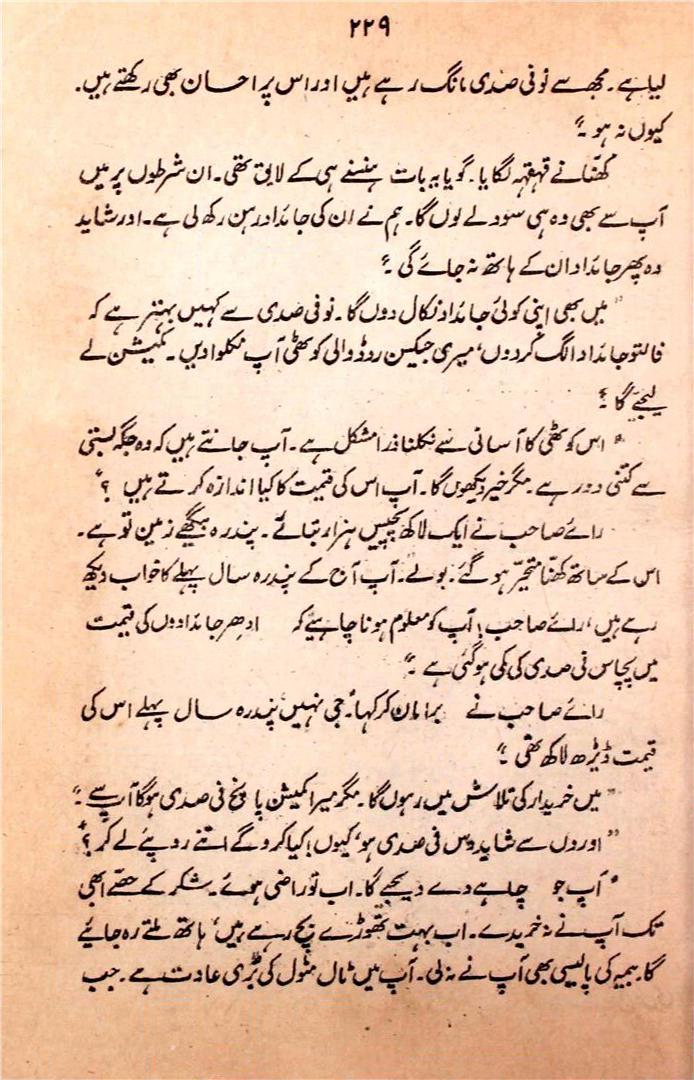 ۲۲۹
لیا ہے۔ مجھ سے نو فی صدی مانگ رہے ہیں اور اس پر احسان بھی رکھتے ہیں۔
کیوں نہ ہو۔"
کھنّا نے قہقہہ لگایا۔ گویا یہ بات ہنسنے ہی کے لایق تھی۔ ان شرطوں پر میں
آپ سے بھی وہ ہی سود لے لوں گا۔ ہم نے ان کی جائداد رہن رکھ لی ہے۔ اور شاید
وہ پھر جائداد ان کے ہاتھ نہ جائے گی۔"
"میں بھی اپنی کوئی جائداد نکال دوں گا۔ نو فی صدی سے کہیں بہتر ہے کہ
فالتو جائداد الگ کر دوں، میری جیکسن روڈ والی کوٹھی آپ نکلوا دیں۔ کمیشن لے
لیجئے گا۔"
"اس کوٹھی کا آسانی سے نکلنا ذرا مشکل ہے۔ آپ جانتے ہیں کہ وہ جگہ بستی
سے کتنی دور ہے۔ مگر خیر دیکھوں گا۔ آپ اس کی قیمت کا کیا اندازہ کرتے ہیں ؟"
رائے صاحب نے ایک لاکھ پچیس ہزار بتائے۔ پندرہ بیگھے زمین تو ہے۔
اس کے ساتھ کھنّا متحیّر ہو گئے۔ بولے۔ آپ آج کے پندرہ سال پہلے کا خواب دیکھ
رہے ہیں، رائے صاحب! آپ کو معلوم ہونا چاہیئے کہ ادھر جائدادوں کی قیمت
میں پچاس فی صدی کی کمی ہو گئی ہے۔"
رائے صاحب نے برا مان کر کہا "جی نہیں، پندرہ سال پہلے اس کی
قیمت ڈیڑھ لاکھ تھی۔"
"میں خریدار کی تلاش میں رہوں گا۔ مگر میرا کمیشن پانچ فی صدی ہوگا آپ سے۔"
"اوروں سے شاید دس فی صدی ہو، کیوں! کیا کرو گے اتنے روپئے لے کر؟"
"آپ جو چاہے دے دیجیے گا۔ اب تو راضی ہوئے۔ شکر کے حصّے ابھی
تک آپ نے نہ خریدے۔ اب بہت تھوڑے بچ رہے ہیں، ہاتھ ملتے رہ جایئے
گا۔ بیمہ کی پالیسی بھی آپ نے نہ لی۔ آپ میں ٹال مٹول کی بُری عادت ہے۔ جب